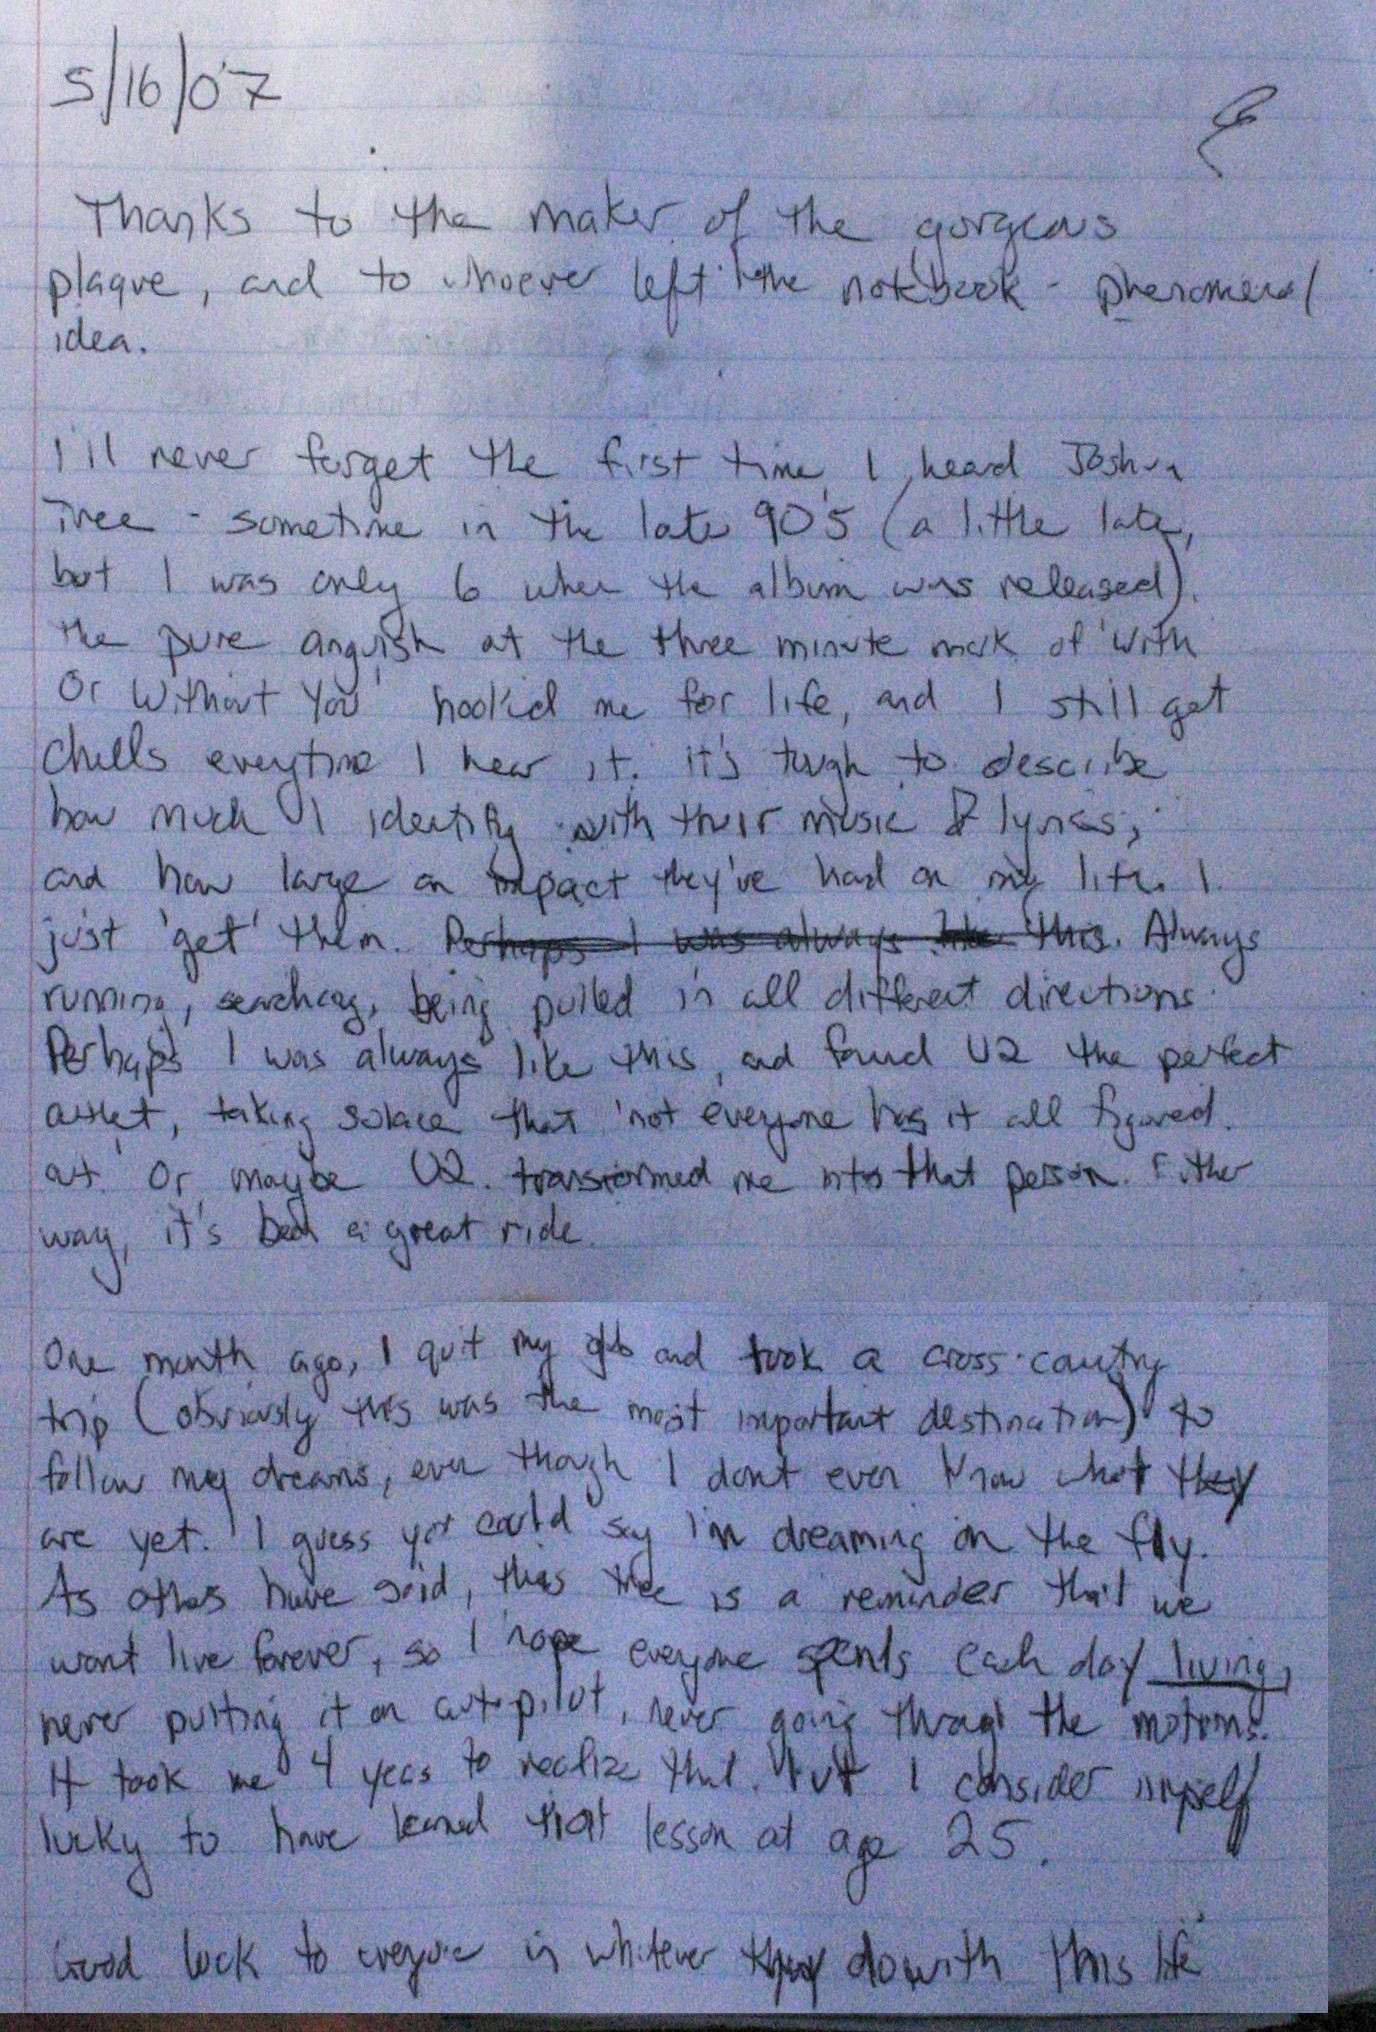 5/16/07
Thanks to the maker of the gorgeous
plaque, and to whoever left the notebook - phenomenal
idea.
I'll never forget the first time I heard Joshua
Tree - sometime in the late 90's (a little late,
but I was only 6 when the album was released).
The pure anguish at the three minute mark of 'With
Or Without You' hooked me for life, and I still get
chills everytime I hear it. it's tough to describe
how much I identify with their music & lyrics,
and how large an impact they've had on my life. I
just 'get' them. Perhaps I was always like this. Always
running, searching, being pulled in all different directions.
Perhaps I was always like this, and found U2 the perfect
outlet, taking solace that 'not everyone has it all figured
out'. Or maybe U2 transformed me into that person. Either
way, it's been a great ride.
One month ago, I quit my job and took a cross-country
trip (obviously this was the most important destination) to
follow my dreams, even though I don't even know what they
are yet. I guess you could say I'm dreaming on the fly.
As others have said, this tree is a reminder that we
won't live forever, so I hope everyone spends each day living,
never putting it on autopilot, never going through the motions.
It took me 4 years to realize that. but I consider myself
lucky to have learned that lesson at age 25.
Good luck to everyone in whatever they do with this life